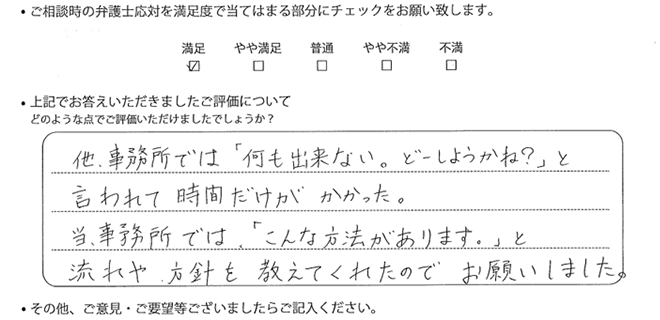 • ご相談時の弁護士応対を満足度で当てはまる部分にチェックをお願い致します。
満足 やや満足 普通 やや不満 不満
☑ □ □ □ □
• 上記でお答えいただきましたご評価について
どのような点でご評価いただけましたでしょうか？
他、事務所では「何も出来ない。どーしようかね?」と
言われて 時間だけが かかった。
当、事務所では、「こんな方法があります。」と
流れや、方針を 教えてくれたので お願いしました。
• その他、ご意見・ご要望等ございましたらご記入ください。